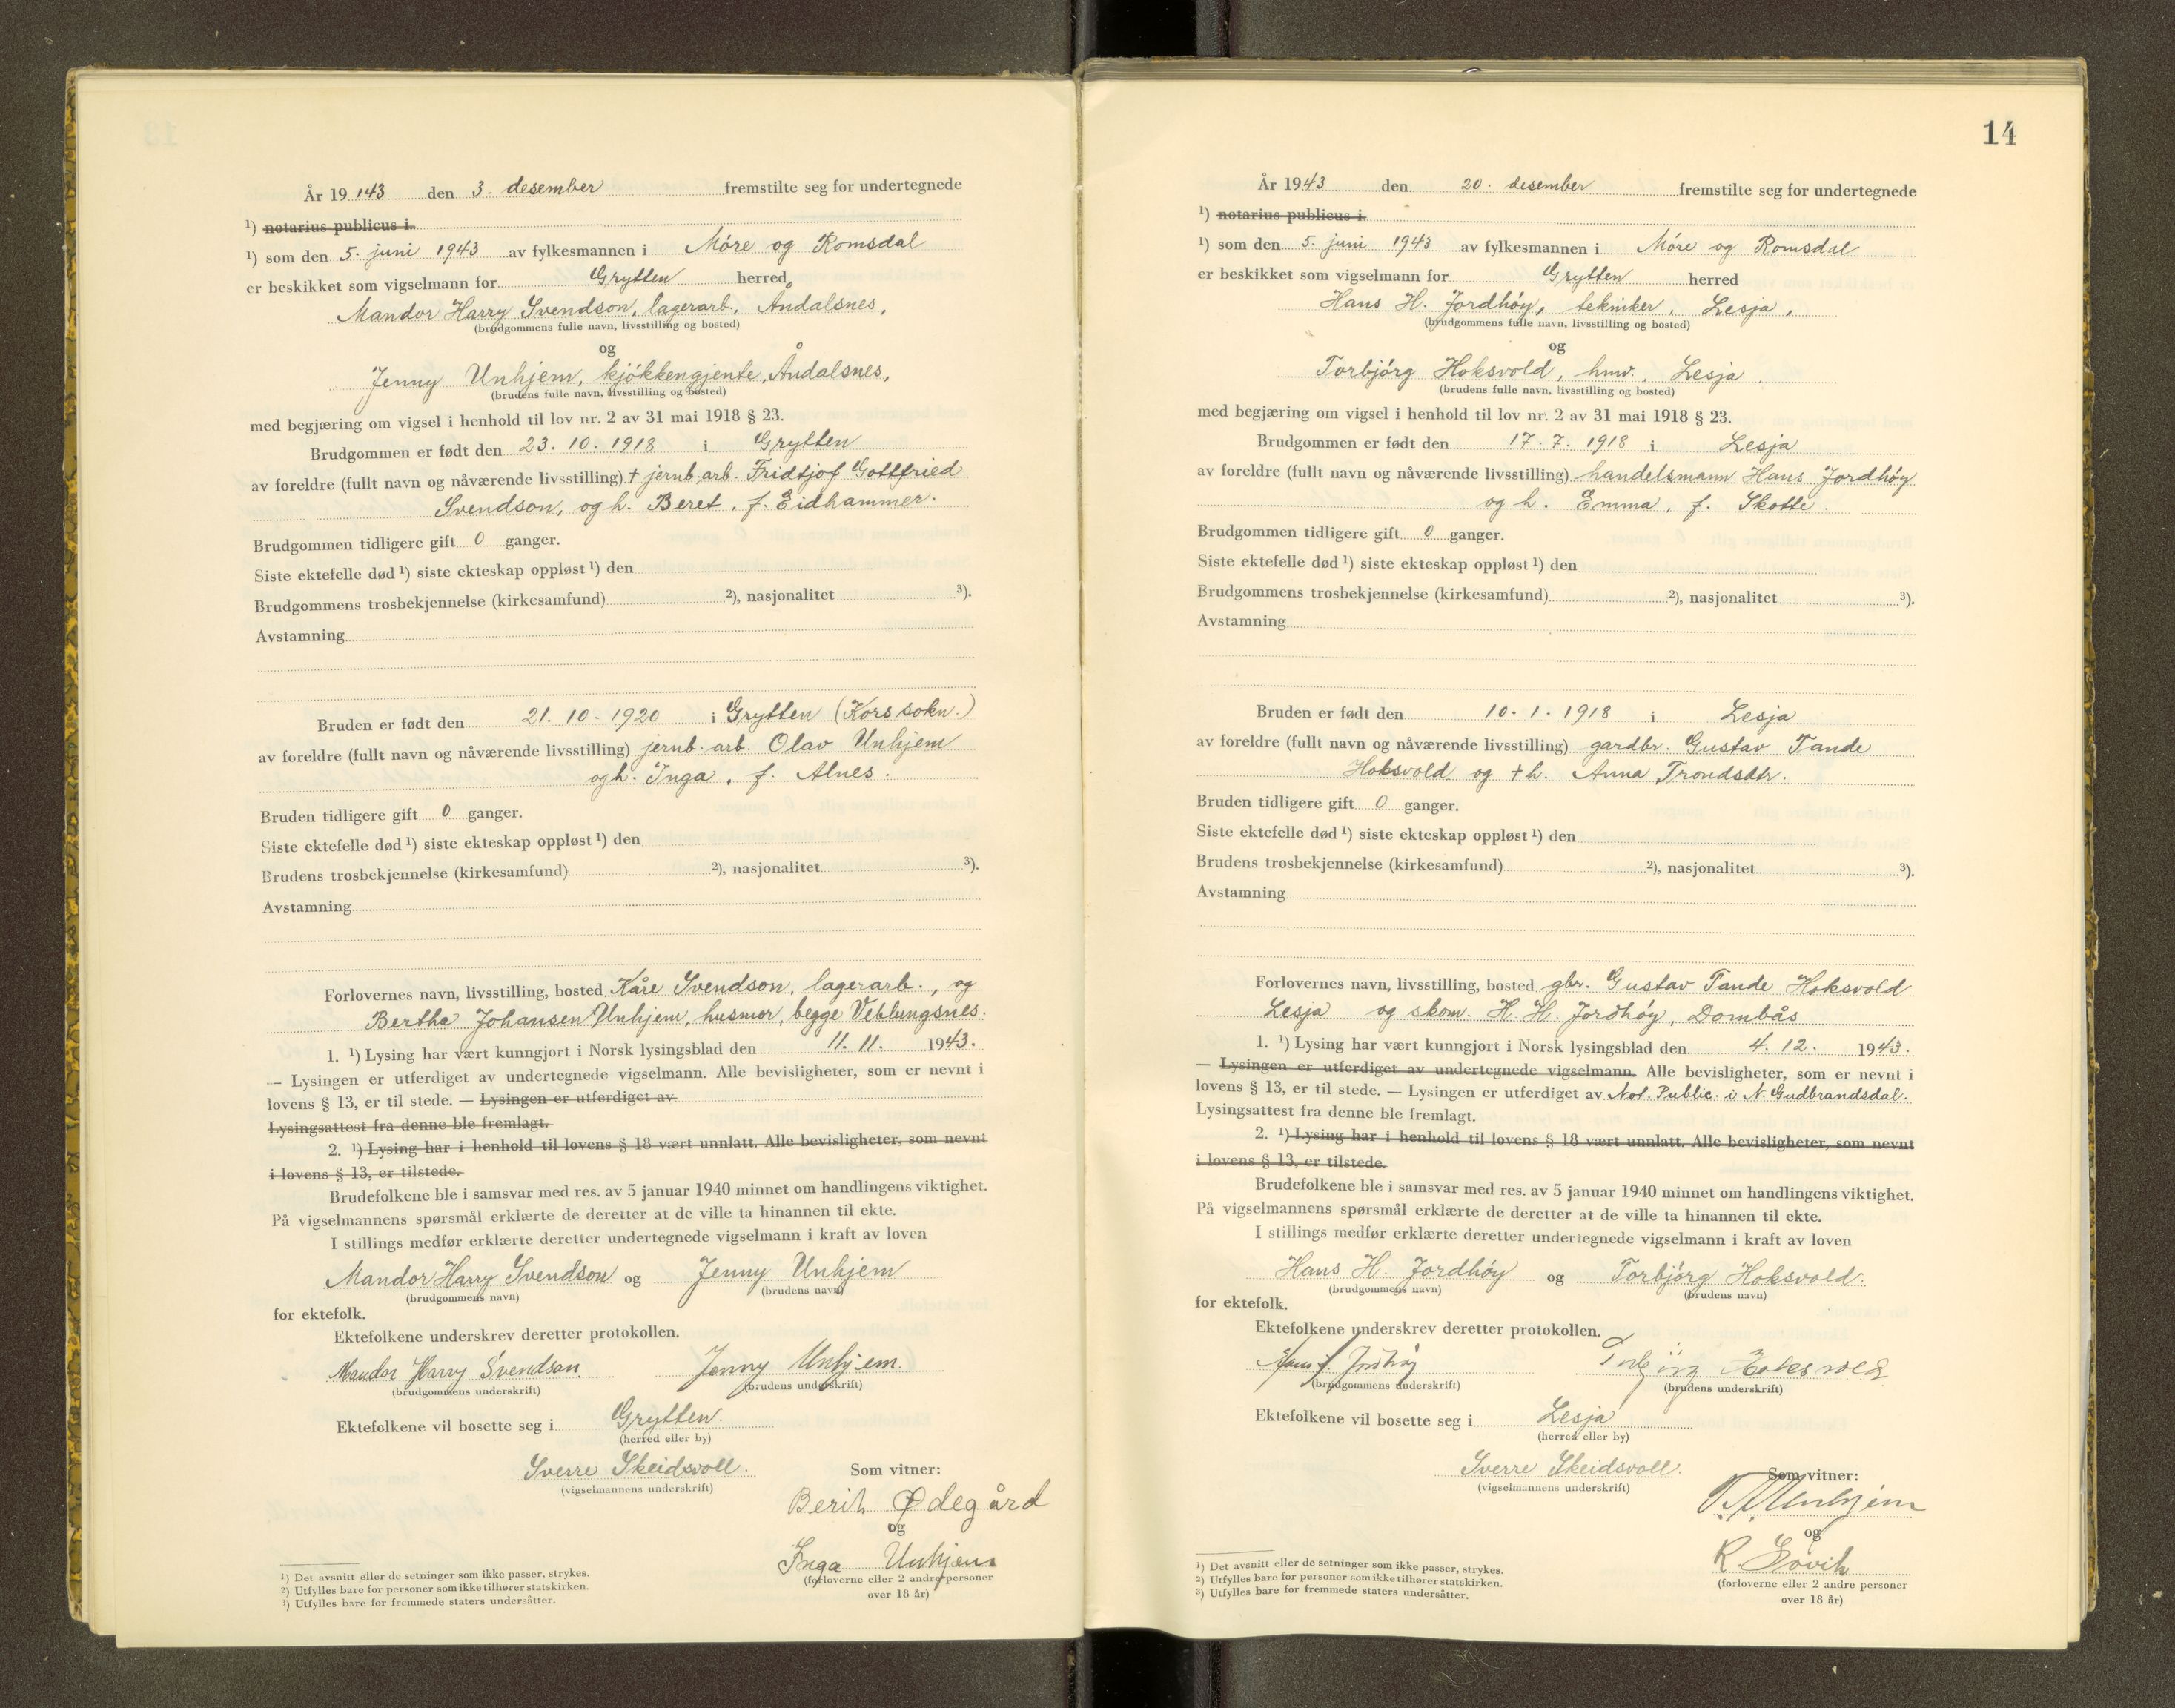 År 19 143 den 3. desember fremstilte seg for undertegnede
¹) notarius publicus i
¹) som den 5. juni 1943 av fylkesmannen i Møre og Romsdal
er beskikket som vigselmann for Grytten herred
Mandor Harry Svendson, lagerarb. Åndalsnes,
(brudgommens fulle navn, livsstilling og bosted)
og
Jenny Unhjem, kjøkkengjente, Åndalsnes,
(brudens fulle navn, livsstilling og bosted)
med begjæring om vigsel i henhold til lov nr. 2 av 31 mai 1918 § 23.
Brudgommen er født den 23. 10. 1918 i Grytten
av foreldre (fullt navn og nåværende livsstilling) † jernb. arb. Fridtjof Gottfried
Svendson, og h. Beret, f. Eidhammer.
Brudgommen tidligere gift 0 ganger.
Siste ektefelle død ¹) siste ekteskap oppløst ¹) den
Brudgommens trosbekjennelse (kirkesamfund) ²), nasjonalitet ³).
Avstamning
Bruden er født den 21. 10. 1920 i Grytten (Kors sokn.)
av foreldre (fullt navn og nåværende livsstilling) jernb. arb. Olav Unhjem
og h. Inga, f. Alnes.
Bruden tidligere gift 0 ganger.
Siste ektefelle død ¹) siste ekteskap oppløst ¹) den
Brudens trosbekjennelse (kirkesamfund) ²), nasjonalitet ³).
Avstamning
Forlovernes navn, livsstilling, bosted Kåre Svendson, lagerarb., og
Bertha Johansen Unhjem, husmor, begge Veblungsnes.
1. ¹) Lysing har vært kunngjort i Norsk lysingsblad den 11. 11. 1943.
— Lysingen er utferdiget av undertegnede vigselmann. Alle bevisligheter, som er nevnt i
lovens § 13, er til stede. — Lysingen er utferdiget av
Lysingsattest fra denne ble fremlagt.
2. ¹) Lysing har i henhold til lovens § 18 vært unnlatt. Alle bevisligheter, som nevnt
i lovens § 13, er tilstede.
Brudefolkene ble i samsvar med res. av 5 januar 1940 minnet om handlingens viktighet.
På vigselmannens spørsmål erklærte de deretter at de ville ta hinannen til ekte.
I stillings medfør erklærte deretter undertegnede vigselmann i kraft av loven
Mandor Harry Svendson og Jenny Unhjem
(brudgommens navn) (brudens navn)
for ektefolk.
Ektefolkene underskrev deretter protokollen.
Mandor Harry Svendson. Jenny Unhjem.
(brudgommens underskrift) (brudens underskrift)
Ektefolkene vil bosette seg i Grytten.
(herred eller by)
Sverre Skeidsvoll. Som vitner:
(vigselmannens underskrift)
Berit Ødegård
og
Inga Unhjem
(forloverne eller 2 andre personer
over 18 år)
¹) Det avsnitt eller de setninger som ikke passer, strykes.
²) Utfylles bare for personer som ikke tilhører statskirken.
³) Utfylles bare for fremmede staters undersåtter.
14
År 1943 den 20. desember fremstilte seg for undertegnede
¹) notarius publicus i
¹) som den 5. juni 1943 av fylkesmannen i Møre og Romsdal
er beskikket som vigselmann for Grytten herred
Hans H. Jordhøy, tekniker, Lesja,
(brudgommens fulle navn, livsstilling og bosted)
og
Torbjørg Hoksvold, hmv., Lesja.
(brudens fulle navn, livsstilling og bosted)
med begjæring om vigsel i henhold til lov nr. 2 av 31 mai 1918 § 23.
Brudgommen er født den 17. 7. 1918 i Lesja
av foreldre (fullt navn og nåværende livsstilling) handelsmann Hans Jordhøy
og h. Emma, f. Skotte.
Brudgommen tidligere gift 0 ganger.
Siste ektefelle død ¹) siste ekteskap oppløst ¹) den
Brudgommens trosbekjennelse (kirkesamfund) ²), nasjonalitet ³).
Avstamning
Bruden er født den 10. 1. 1918 i Lesja
av foreldre (fullt navn og nåværende livsstilling) gardbr. Gustav Tande
Hoksvold og † h. Anna Trondsdtr.
Bruden tidligere gift 0 ganger.
Siste ektefelle død ¹) siste ekteskap oppløst ¹) den
Brudens trosbekjennelse (kirkesamfund) ²), nasjonalitet ³).
Avstamning
Forlovernes navn, livsstilling, bosted gbr. Gustav Tande Hoksvold
Lesja og skom. H. H. Jordhøy, Dombås
1. ¹) Lysing har vært kunngjort i Norsk lysingsblad den 4. 12. 1943.
— Lysingen er utferdiget av undertegnede vigselmann. Alle bevisligheter, som er nevnt i
lovens § 13, er til stede. — Lysingen er utferdiget av Not. Public. i N. Gudbrandsdal.
Lysingsattest fra denne ble fremlagt.
2. ¹) Lysing har i henhold til lovens § 18 vært unnlatt. Alle bevisligheter, som nevnt
i lovens § 13, er tilstede.
Brudefolkene ble i samsvar med res. av 5 januar 1940 minnet om handlingens viktighet.
På vigselmannens spørsmål erklærte de deretter at de ville ta hinannen til ekte.
I stillings medfør erklærte deretter undertegnede vigselmann i kraft av loven
Hans H. Jordhøy og Torbjørg Hoksvold.
(brudgommens navn) (brudens navn)
for ektefolk.
Ektefolkene underskrev deretter protokollen.
Hans J. Jordhøy Torbjörg Hoksvold
(brudgommens underskrift) (brudens underskrift)
Ektefolkene vil bosette seg i Lesja
(herred eller by)
Sverre Skeidsvoll. Som vitner:
(vigselmannens underskrift)
Unhjem
og
R. Gövik
(forloverne eller 2 andre personer
over 18 år)
¹) Det avsnitt eller de setninger som ikke passer, strykes.
²) Utfylles bare for personer som ikke tilhører statskirken.
³) Utfylles bare for fremmede staters undersåtter.